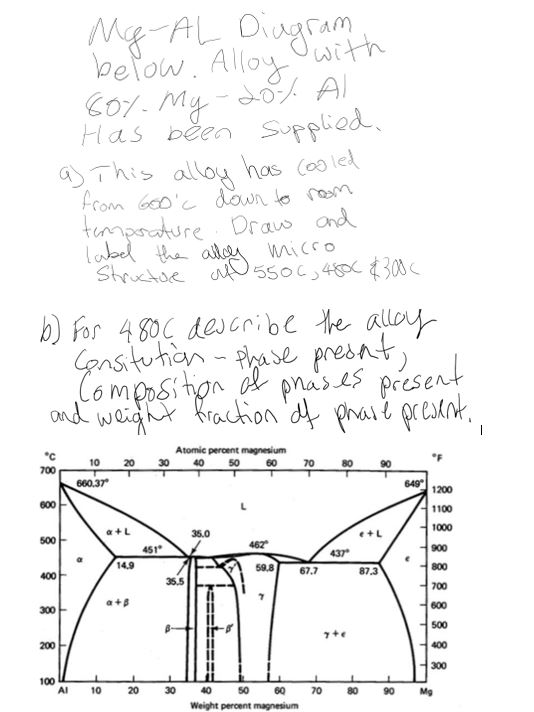 Mg-AL Diagram
below. Alloy with
80%. Mg - 20% Al
Has been Supplied.
a) This alloy has cooled
from 600°c down to room
temperature. Draw and
label the alloy micro
Structure at 550C, 480C & 300c
b) For 480C describe the alloy
Consitution - Phase present,
Composition of phases present
and weight fraction of phase present.
Atomic percent magnesium
°C 10 20 30 40 50 60 70 80 90 °F
700
660.37° 649°
1200
600 L 1100
1000
α + L 35.0 ε + L
500 451° 462° 437° 900
α 14.9 35.5 γ' 59.8 67.7 87.3 ε 800
400 700
α + β γ
300 600
β β' γ + ε 500
200 400
300
100
Al 10 20 30 40 50 60 70 80 90 Mg
Weight percent magnesium